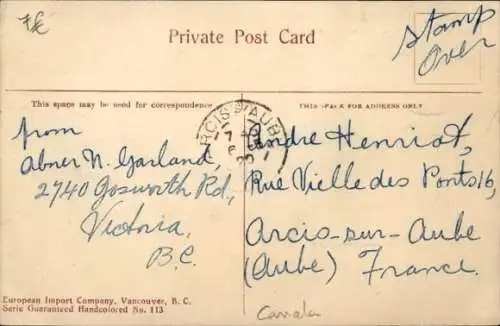 7€
Private Post Card
Stamp
Over
This space may be used for correspondence
THIS SPACE FOR ADDRESS ONLY
ARCIS S/AUBE
from
Abner N. Garland
2740 Gosworth Rd.,
Victoria.
B.C.
Andre Henriot,
Rue Vielle des Ponts 16,
Arcis-sur-Aube
(Aube) France.
European Import Company, Vancouver, B. C.
Serie Guaranteed Handcolored No. 113
Canada